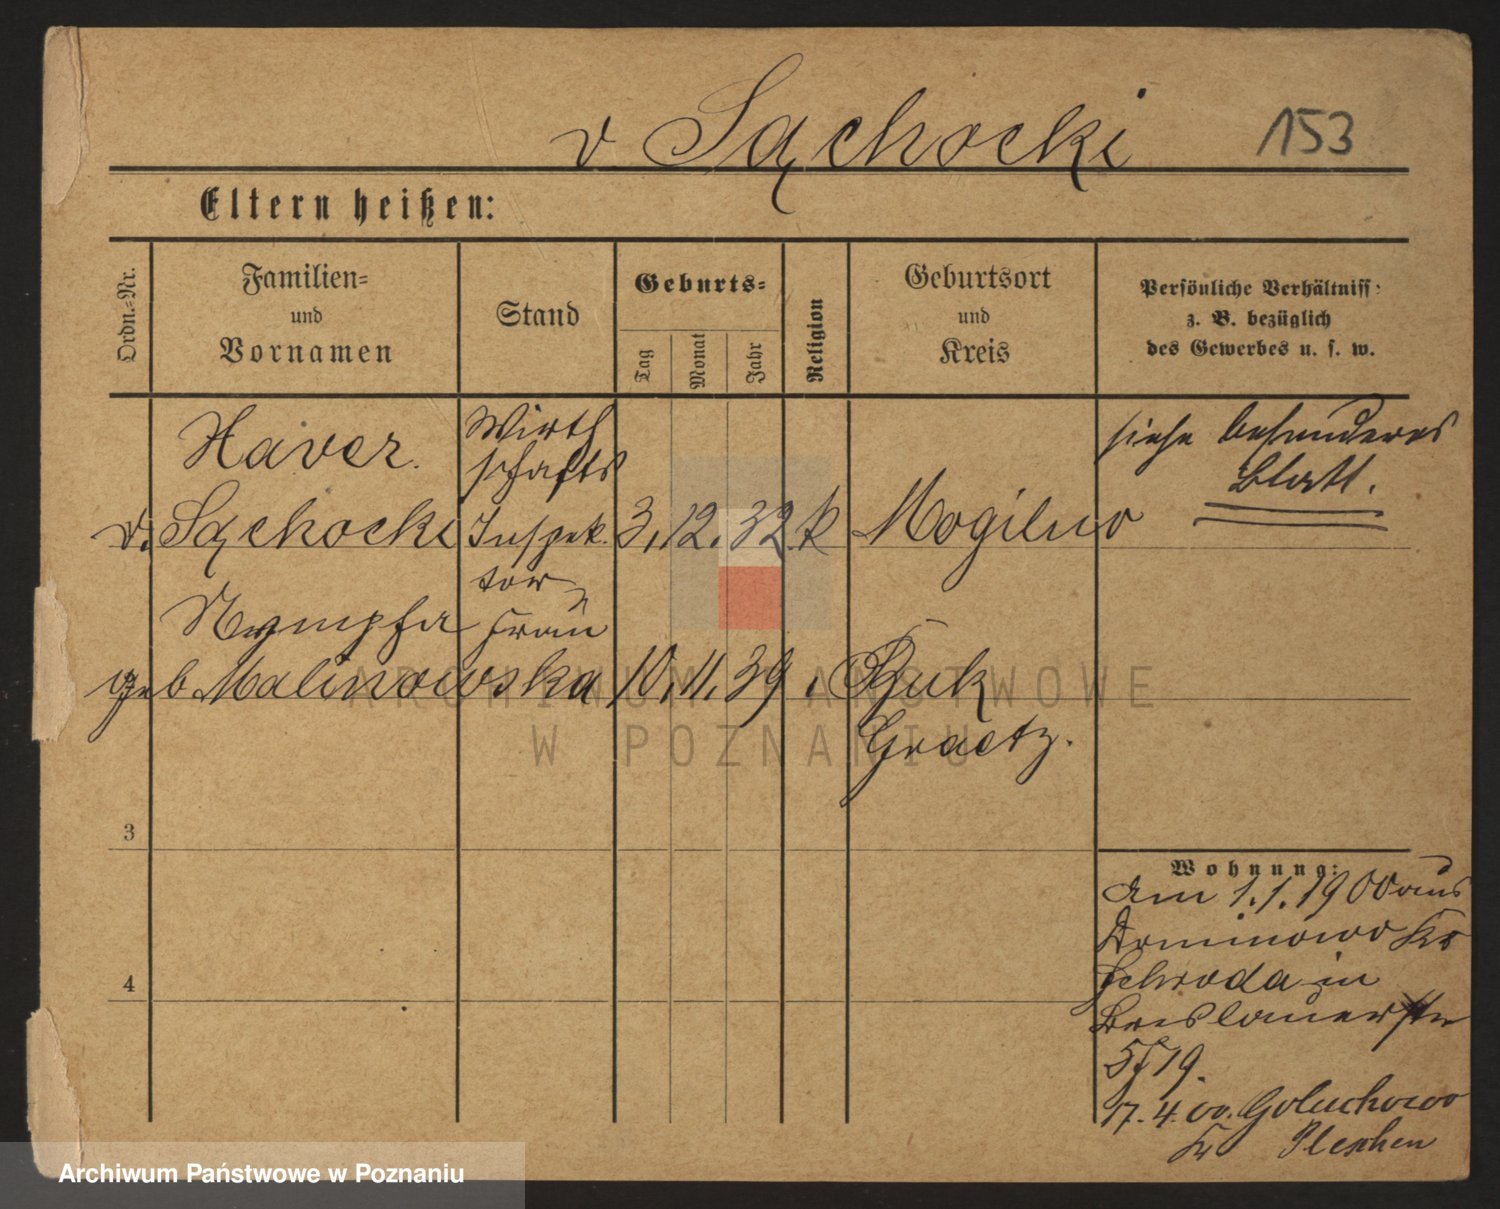 v Sąchocki 153
Eltern heißen:
Ordn.-Nr.
Familien-
und
Vornamen
Stand
Geburts-
Tag
Monat
Jahr
Religion
Geburtsort
und
Kreis
Persönliche Verhältniss
z. B. bezüglich
des Gewerbes u. s. w.
Xaver. Wirth
schafts
v. Sąchocki Inspek. 3. 12. 32 k Mogilno
tor
siehe besonderes
Blatt.
Nympfa Frau
geb Malinowska 10. 11. 39 Buk
Graetz.
3
4
Wohnung:
Am 1.1.1900 aus
Dominowo Krs
Schroda in
Breslauerstr
19.
17.4.00. Goluchowo
Kr Pleschen
ARCHIWUM PAŃSTWOWE
W POZNANIU
Archiwum Państwowe w Poznaniu